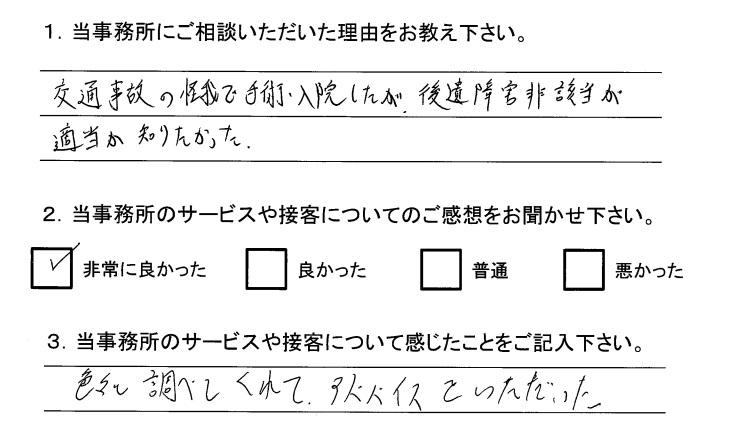 1．当事務所にご相談いただいた理由をお教え下さい。
交通事故の怪我で手術・入院したが、後遺障害非該当が
適当か知りたかった.
2．当事務所のサービスや接客についてのご感想をお聞かせ下さい。
✓ 非常に良かった 良かった 普通 悪かった
3．当事務所のサービスや接客について感じたことをご記入下さい。
色々と調べてくれて、アドバイスをいただいた